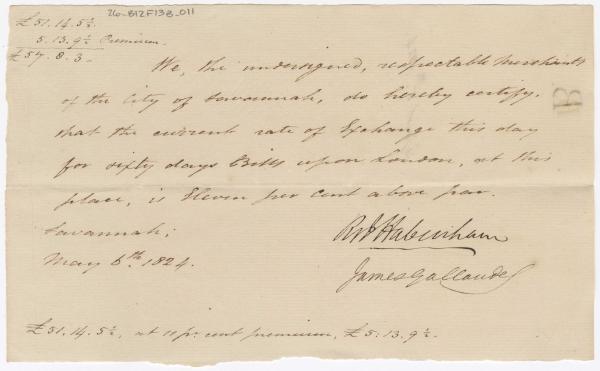 26-B12F13B_011
£51.14.5½
5.13.9½ Premium.
£57.8.3.
We, the undersigned, respectable Merchants
of the City of Savannah, do hereby certify,
that the current rate of Exchange this day
for sixty days Bills upon London, at this
place, is Eleven per cent above par.
Savannah;
May 6th. 1824.
Rob Habersham
James Gallaudet
£51.14.5½, at 11 pr. cent premium, £5.13.9½.
B